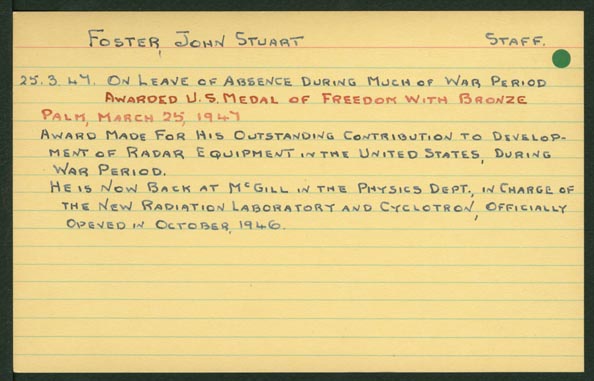 FOSTER, JOHN STUART STAFF.
25.3.47. ON LEAVE OF ABSENCE DURING MUCH OF WAR PERIOD
AWARDED U.S. MEDAL OF FREEDOM WITH BRONZE
PALM, MARCH 25, 1947
AWARD MADE FOR HIS OUTSTANDING CONTRIBUTION TO DEVELOP-
MENT OF RADAR EQUIPMENT IN THE UNITED STATES, DURING
WAR PERIOD.
HE IS NOW BACK AT McGILL IN THE PHYSICS DEPT., IN CHARGE OF
THE NEW RADIATION LABORATORY AND CYCLOTRON, OFFICIALLY
OPENED IN OCTOBER, 1946.